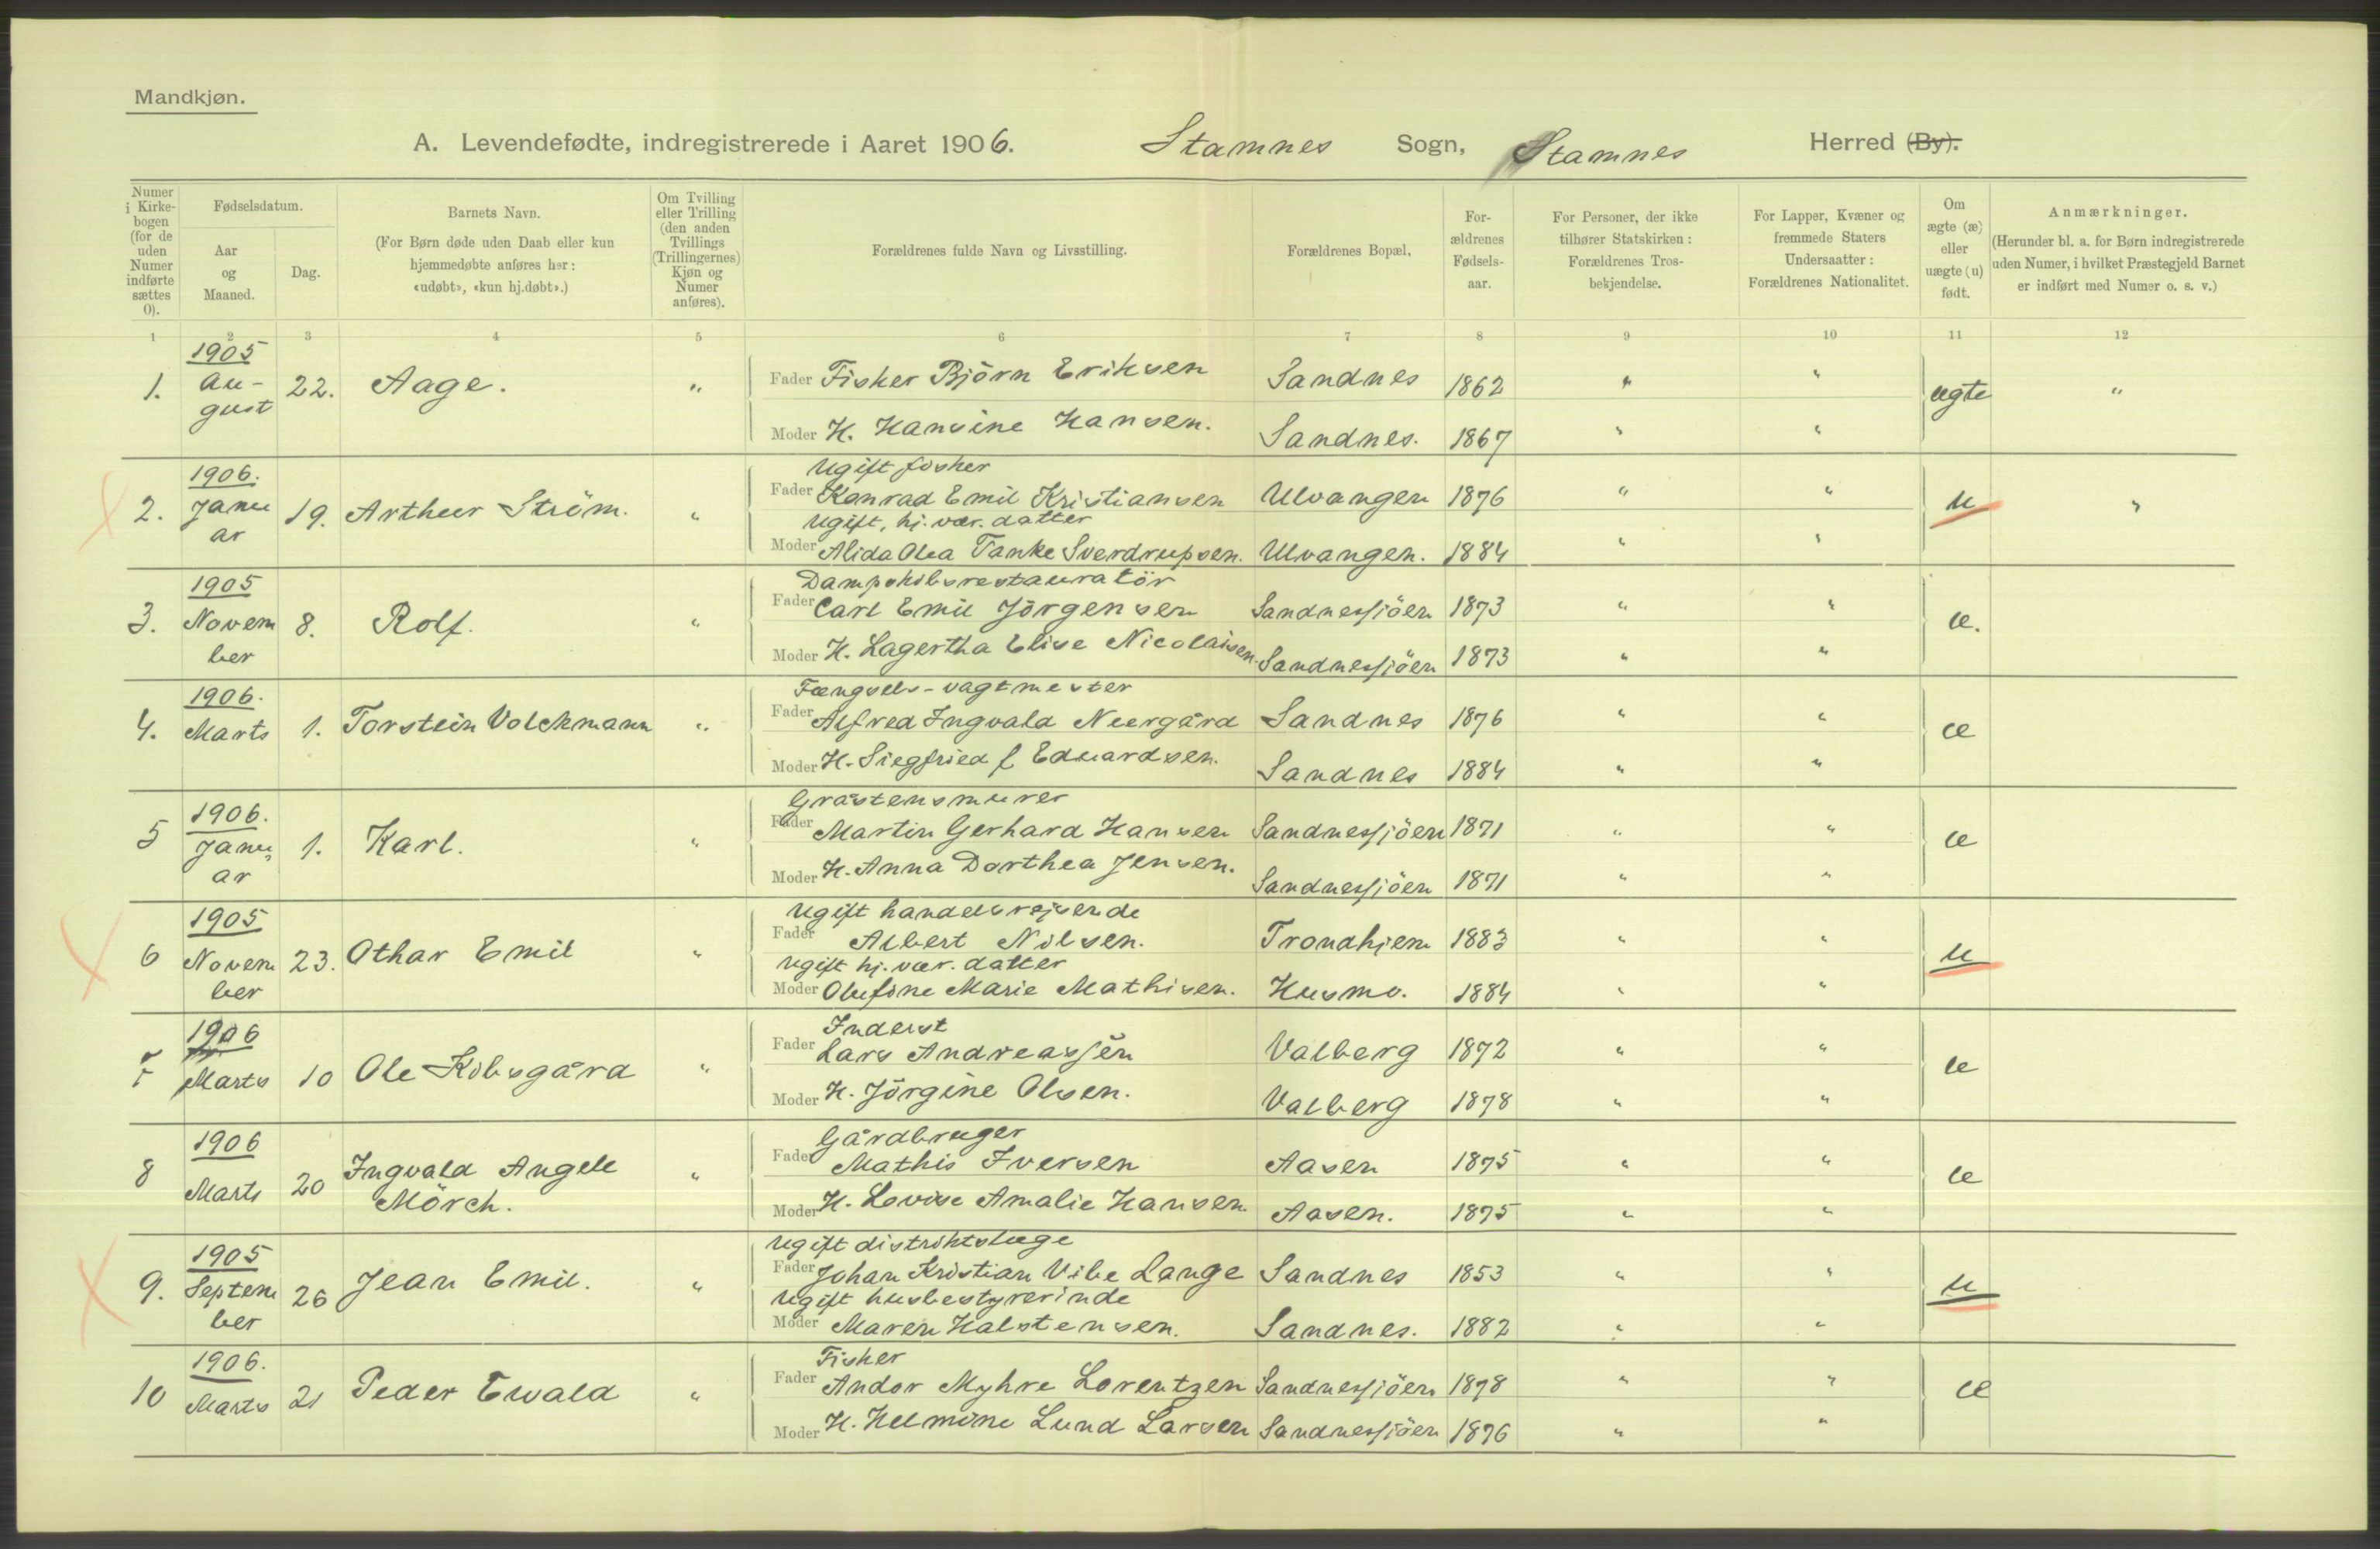 Mandkjøn.
A. Levendefødte, indregistrerede i Aaret 1906. Stamnes Sogn, Stamnes Herred (By).
Numer i Kirkebogen (for de uden Numer indførte sættes 0).
Fødselsdatum.
Aar og Maaned.
Dag.
Barnets Navn.
(For Børn døde uden Daab eller kun hjemmedøbte anføres her: «udøbt», «kun hj.døbt».)
Om Tvilling eller Trilling (den anden Tvillings (Trillingernes) Kjøn og Numer anføres).
Forældrenes fulde Navn og Livsstilling.
Forældrenes Bopæl,
Forældrenes Fødselsaar.
For Personer, der ikke tilhører Statskirken: Forældrenes Trosbekjendelse.
For Lapper, Kvæner og fremmede Staters Undersaatter: Forældrenes Nationalitet.
Om ægte (æ) eller uægte (u) født.
Anmærkninger.
(Herunder bl. a. for Børn indregistrerede uden Numer, i hvilket Præstegjeld Barnet er indført med Numer o. s. v.)
1 2 3 4 5 6 7 8 9 10 11 12
1. 1905 August 22. Aage. " Fader Fisker Björn Eriksen Sandnes 1862 " " ægte "
Moder H. Hansine Hansen. Sandnes. 1867 " "
Ugift fisker
2. 1906. Januar 19. Arthur Ström. " Fader Konrad Emil Kristiansen Ulvangen 1876 " " u "
Ugift, hj.vær. datter
Moder Alida Olea Tanke Sverdrupsen. Ulvangen. 1884 " "
Dampskibsrestauratör
3. 1905 November 8. Rolf. " Fader Carl Emil Jörgensen Sandnessjöen 1873 " " æ.
Moder H. Lagertha Elise Nicolaisen. Sandnessjöen 1873 " "
Fængsels-vagtmester
4. 1906. Marts 1. Torstein Volckmann " Fader Alfred Ingvald Neergård Sandnes 1876 " " æ
Moder H. Siegfried f Eduardsen. Sandnes 1884 " "
Gråstensmurer
5 1906. Januar 1. Karl. " Fader Martin Gerhard Hansen Sandnessjöen 1871 " " æ
Moder H. Anna Dorthea Jensen. Sandnessjöen 1871 " "
Ugift handelsrejsende
6 1905 November 23. Othar Emil " Fader Albert Nilsen. Trondhjem 1883 " " u
Ugift hj.vær. datter
Moder Olufine Marie Mathisen. Husmo. 1884 " "
Inderst
7 1906 Marts 10 Ole Kibsgård " Fader Lars Andreassen Valberg 1872 " " æ
Moder H. Jörgine Olsen. Valberg 1878 " "
Gårdbruger
8 1906 Marts 20 Ingvald Angell Mörch. " Fader Mathis Iversen Aasen 1875 " " æ
Moder H. Lovise Amalie Hansen Aasen. 1875 " "
Ugift distriktslæge
9. 1905 September 26 Jean Emil. " Fader Johan Kristian Vibe Lange Sandnes 1853 " " u
Ugift husbestyrerinde
Moder Maren Halstensen. Sandnes. 1882 " "
Fisker
10 1906. Marts 21 Peder Ewald " Fader Andor Myhre Lorentzen Sandnessjöen 1878 " " æ
Moder H. Helmine Lund Larsen Sandnessjöen 1876 " "